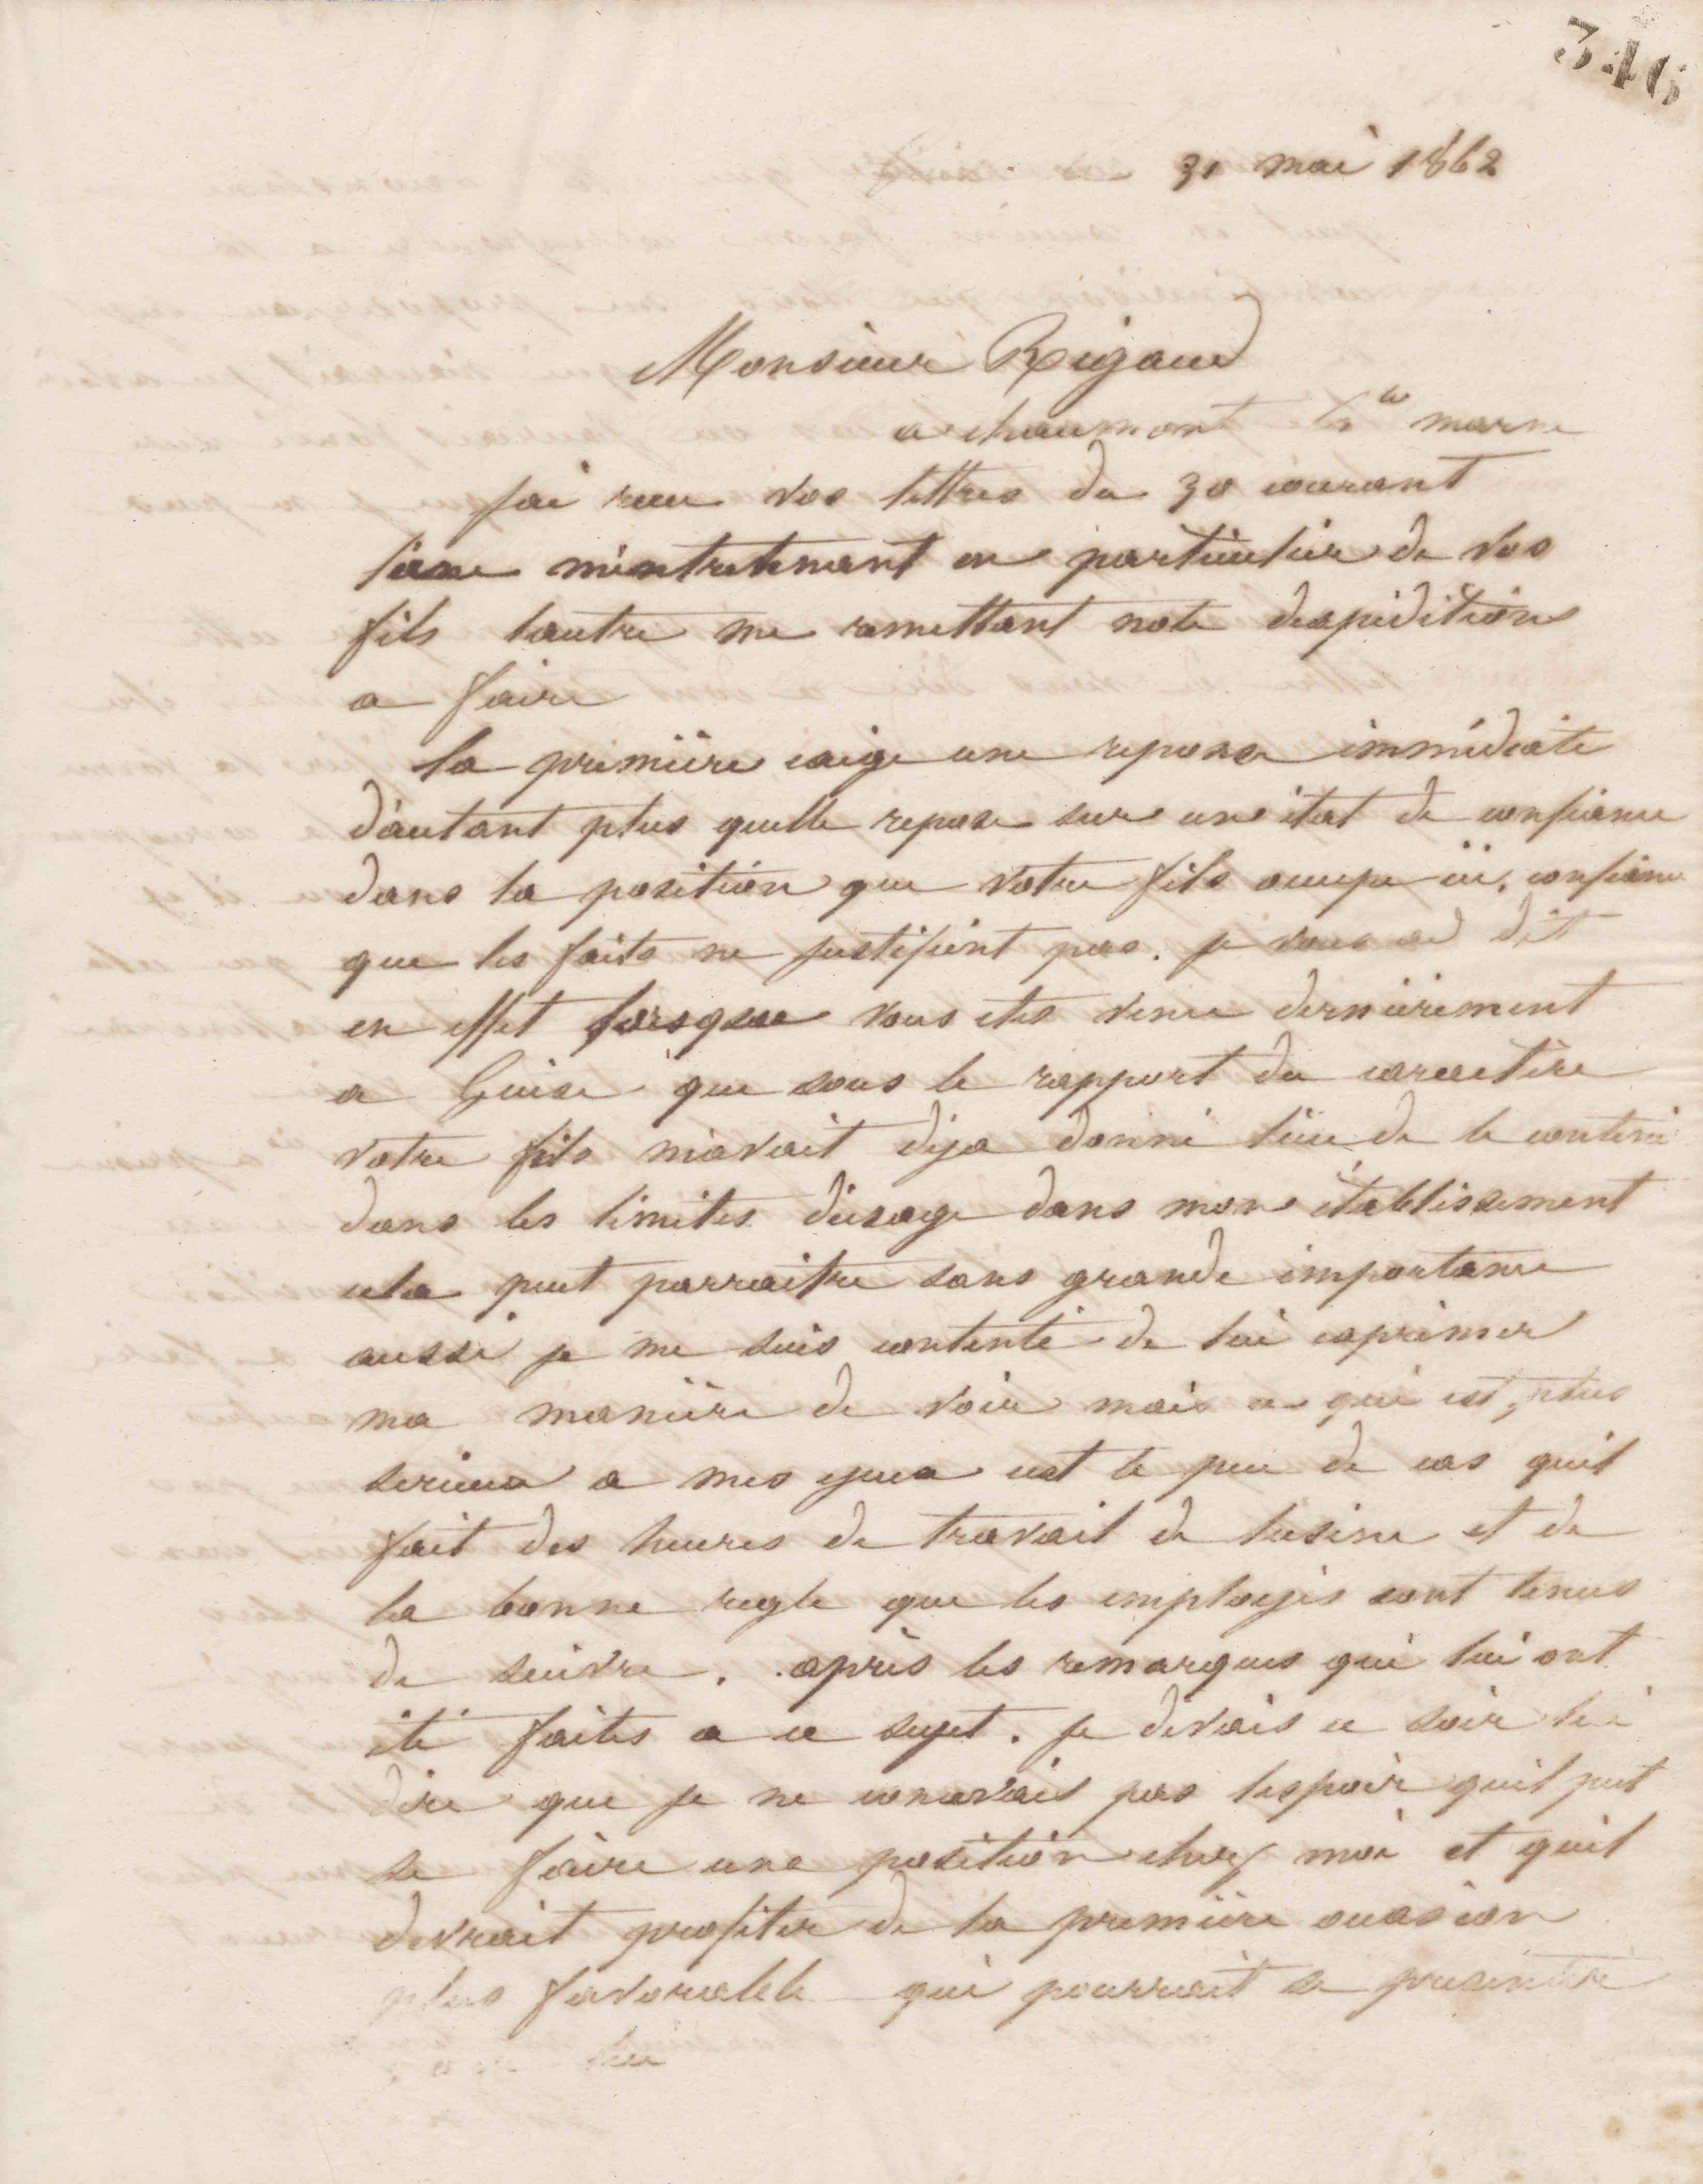 346
31 mai 1862
Monsieur Rigaud
a chaumont hte marne
jai recu vos lettres du 30 courant
lune mentretenant en particulier de vos
fils lautre me remettant note dexpeditions
a faire
la première exige une reponse immédiate
dautant plus quelle repose sur un état de confiance
dans la position que votre fils occupe ici, confiance
que les faits ne justifient pas. je vous ai dit
en effet lorsque vous etes venu dernièrement
a Guise que sous le rapport du caractère
votre fils mavait deja donné lieu de le contenir
dans les limites dusage dans mon établissement
cela peut parraitre sans grande importance
aussi je me suis contenté de lui exprimer
ma manière de voir mais ce qui est plus
serieux a mes yeux cest le peu de cas quil
fait des heures de travail de lusine et de
la bonne regle que les employés sont tenus
de suivre. après les remarques qui lui ont
été faites a ce sujet. je devais ce soir lui
dire que je ne conservais pas lespoir quil put
se faire une position chez moi et quil
devrait profiter de la première occasion
plus favorable qui pourrait se presenter
lui